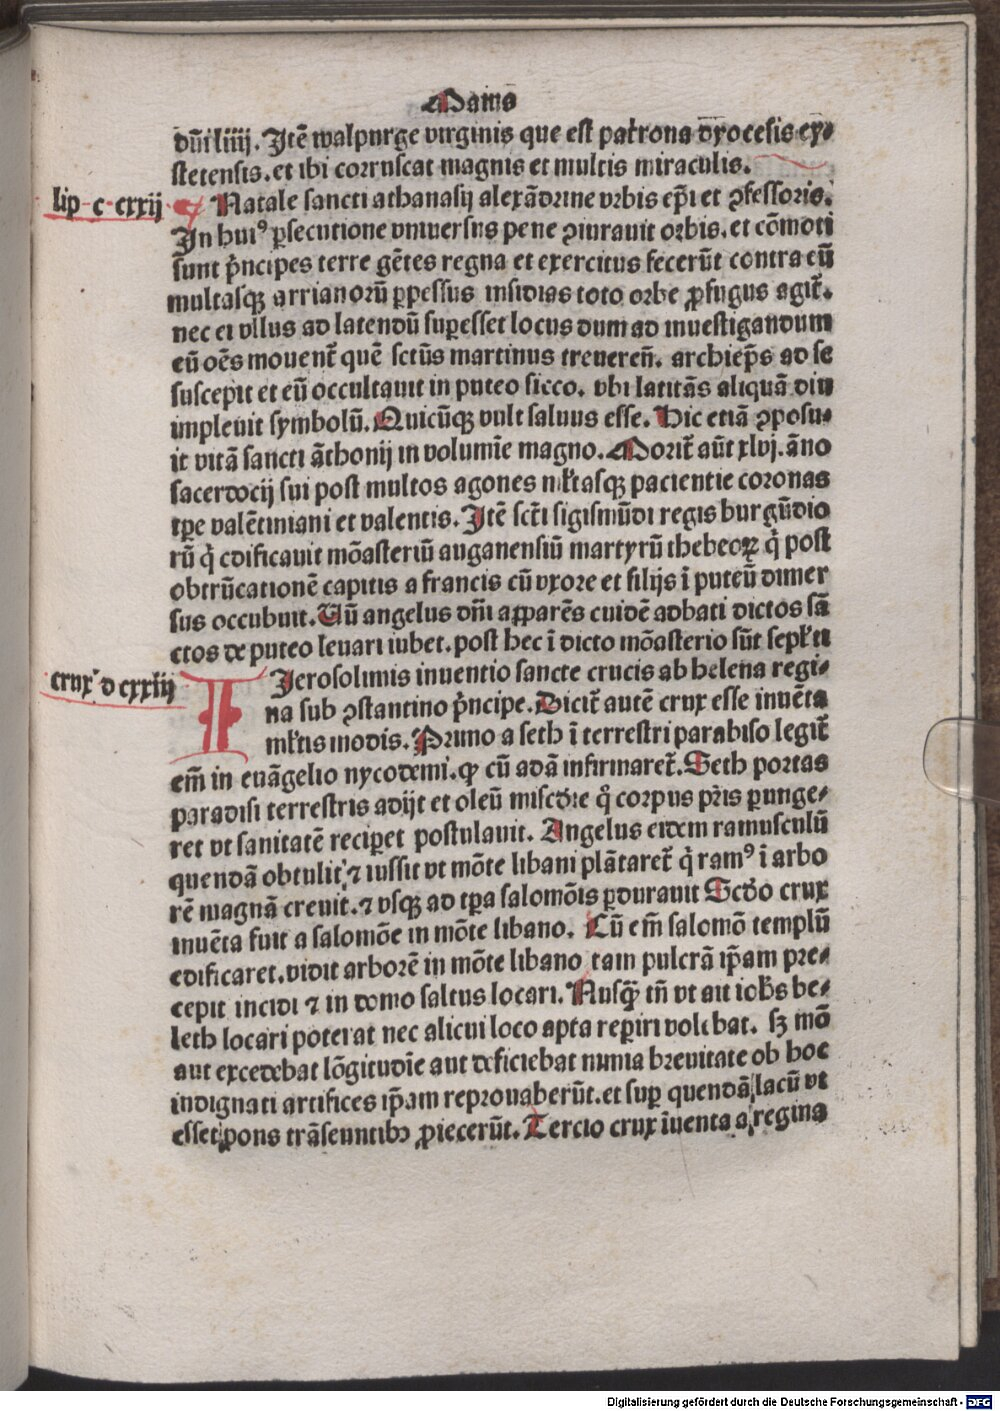 Maius
dūt̄ liiij. Itē walpurge virginis que est patrona dyocesis ey⸗
stetensis. et ibi corruscat magnis et multis miraculis.
lip c cxxij
Natale sancti athanasij alexādrine vrbis ep̄i et ꝯfessoris.
In huiꝰ ꝑsecutione vniuersus pene ꝯiurauit orbis. et cōmoti
sunt p̄ncipes terre gētes regna et exercitus fecerūt contra eū
multasqꝫ arrianorū ꝑpessus insidias toto orbe ꝓfugus agit̄.
nec ei vllus ad latendū suꝑesset locus dum ad inuestigandum
eū oēs mouent̄ quē sctūs martinus treuereñ. archiep̄s ad se
suscepit et eū occultauit in puteo sicco. vbi latitās aliquā diu
impleuit symbolū. Quicūqꝫ vult saluus esse. Hic etiā ꝯposu⸗
it vitā sancti āthonij in volumīe magno. Morit̄ aūt xlvj. āno
sacerdocij sui post multos agones ml̄tasqꝫ pacientie coronas
tꝑe valētiniani et valentis. Itē scti sigismūdi regis burgūdio
rū q̇ edificauit mōasteriū auganensiū martyrū thebeoꝝ q̇ post
obtrūcationē capitis a francis cū vxore et filijs ī puteū dimer
sus occubuit. Uñ angelus dn̄i apparēs cuidē abbati dictos sā
ctos de puteo leuari iubet. post hec ī dicto mōasterio sūt sepl̄ti
crux d cxxiij
Ierosolimis inuentio sancte crucis ab helena regi⸗
na sub ꝯstantino p̄ncipe. Dicit̄ autē crux esse inuēta
ml̄tis modis. Primo a seth ī terrestri paradiso legit̄
em̄ in euāgelio nycodemi. ꝙ cū adā infirmaret̄. Seth portas
paradisi terrestris adijt et oleū miscd̄ie q̊ corpus pr̄is ꝑunge⸗
ret vt sanitatē reciꝑet postulauit. Angelus eidem ramusculū
quendā obtulit, ⁊ iussit vt mōte libani plātaret̄ q̇ ramꝰ ī arbo
rē magnā creuit. ⁊ vsqꝫ ad tꝑa salomōis ꝑdurauit Scd̄o crux
inuēta fuit a salomōe in mōte libano. Cū em̄ salomō templū
edificaret. vidit arborē in mōte libano tam pulcrā ip̄am pre⸗
cepit incidi ⁊ in domo saltus locari. Nusqꝫ̄ tn̄ vt ait ioh̄s be⸗
leth locari poterat nec alicui loco apta reꝑiri volebat. sꝫ mō
aut excedebat lōgitudīe aut deficiebat nimia breuitate ob hoc
indignati artifices ip̄am reprouaberūt. et suꝑ quendā lacū vt
esset pons trāseuntibꝫ ꝓiecerūt. Tercio crux īuenta a regina
Digitalisierung gefördert durch die Deutsche Forschungsgemeinschaft - DFG